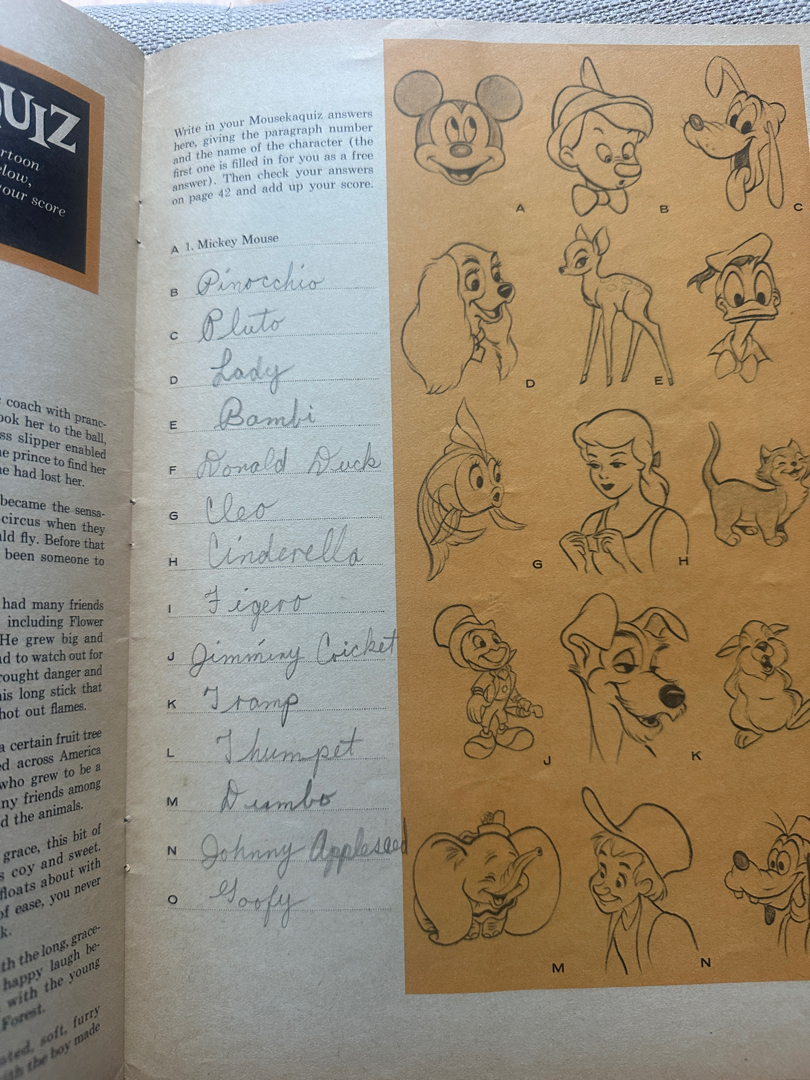 QUIZ
rtoon
low,
your score
coach with pranc-
ook her to the ball,
ss slipper enabled
e prince to find her
e had lost her.
became the sensa-
circus when they
ld fly. Before that
been someone to
had many friends
including Flower
He grew big and
d to watch out for
rought danger and
his long stick that
hot out flames.
a certain fruit tree
ed across America
who grew to be a
ny friends among
d the animals.
grace, this bit of
s coy and sweet.
floats about with
of ease, you never
k.
th the long, grace-
happy laugh be-
with the young
Forest.
ated, soft, furry
with the boy made
Write in your Mousekaquiz answers
here, giving the paragraph number
and the name of the character (the
first one is filled in for you as a free
answer). Then check your answers
on page 42 and add up your score.
A 1. Mickey Mouse
B Pinocchio
C Pluto
D Lady
E Bambi
F Donald Duck
G Cleo
H Cinderella
I Figero
J Jimminy Cricket
K Tramp
L Thumpet
M Dumbo
N Johnny Appleseed
O Goofy
A B C
D E
G H
J K
M N